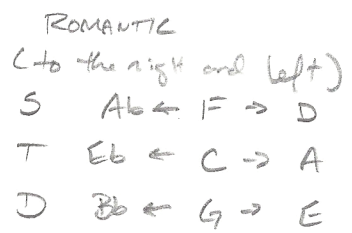 ROMANTIC
(to the right and left)
S Ab ← F → D
T Eb ← C → A
D Bb ← G → E